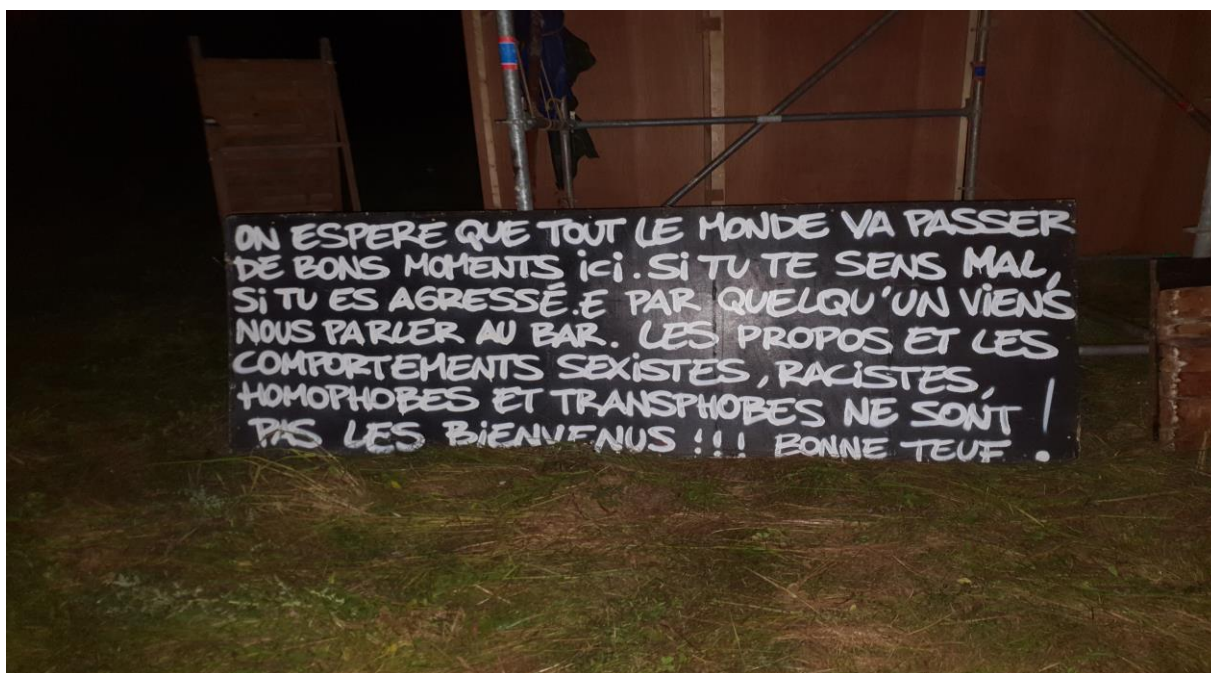 ON ESPERE QUE TOUT LE MONDE VA PASSER
DE BONS MOMENTS ici. Si TU TE SENS MAL,
Si TU ES AGRESSÉ.E PAR QUELQU'UN VIENS
NOUS PARLER AU BAR. LES PROPOS ET LES
COMPORTEMENTS SEXiSTES, RACiSTES,
HOMOPHOBES ET TRANSPHOBES NE SONT
PAS LES BiENVENUS !!! BONNE TEUF !